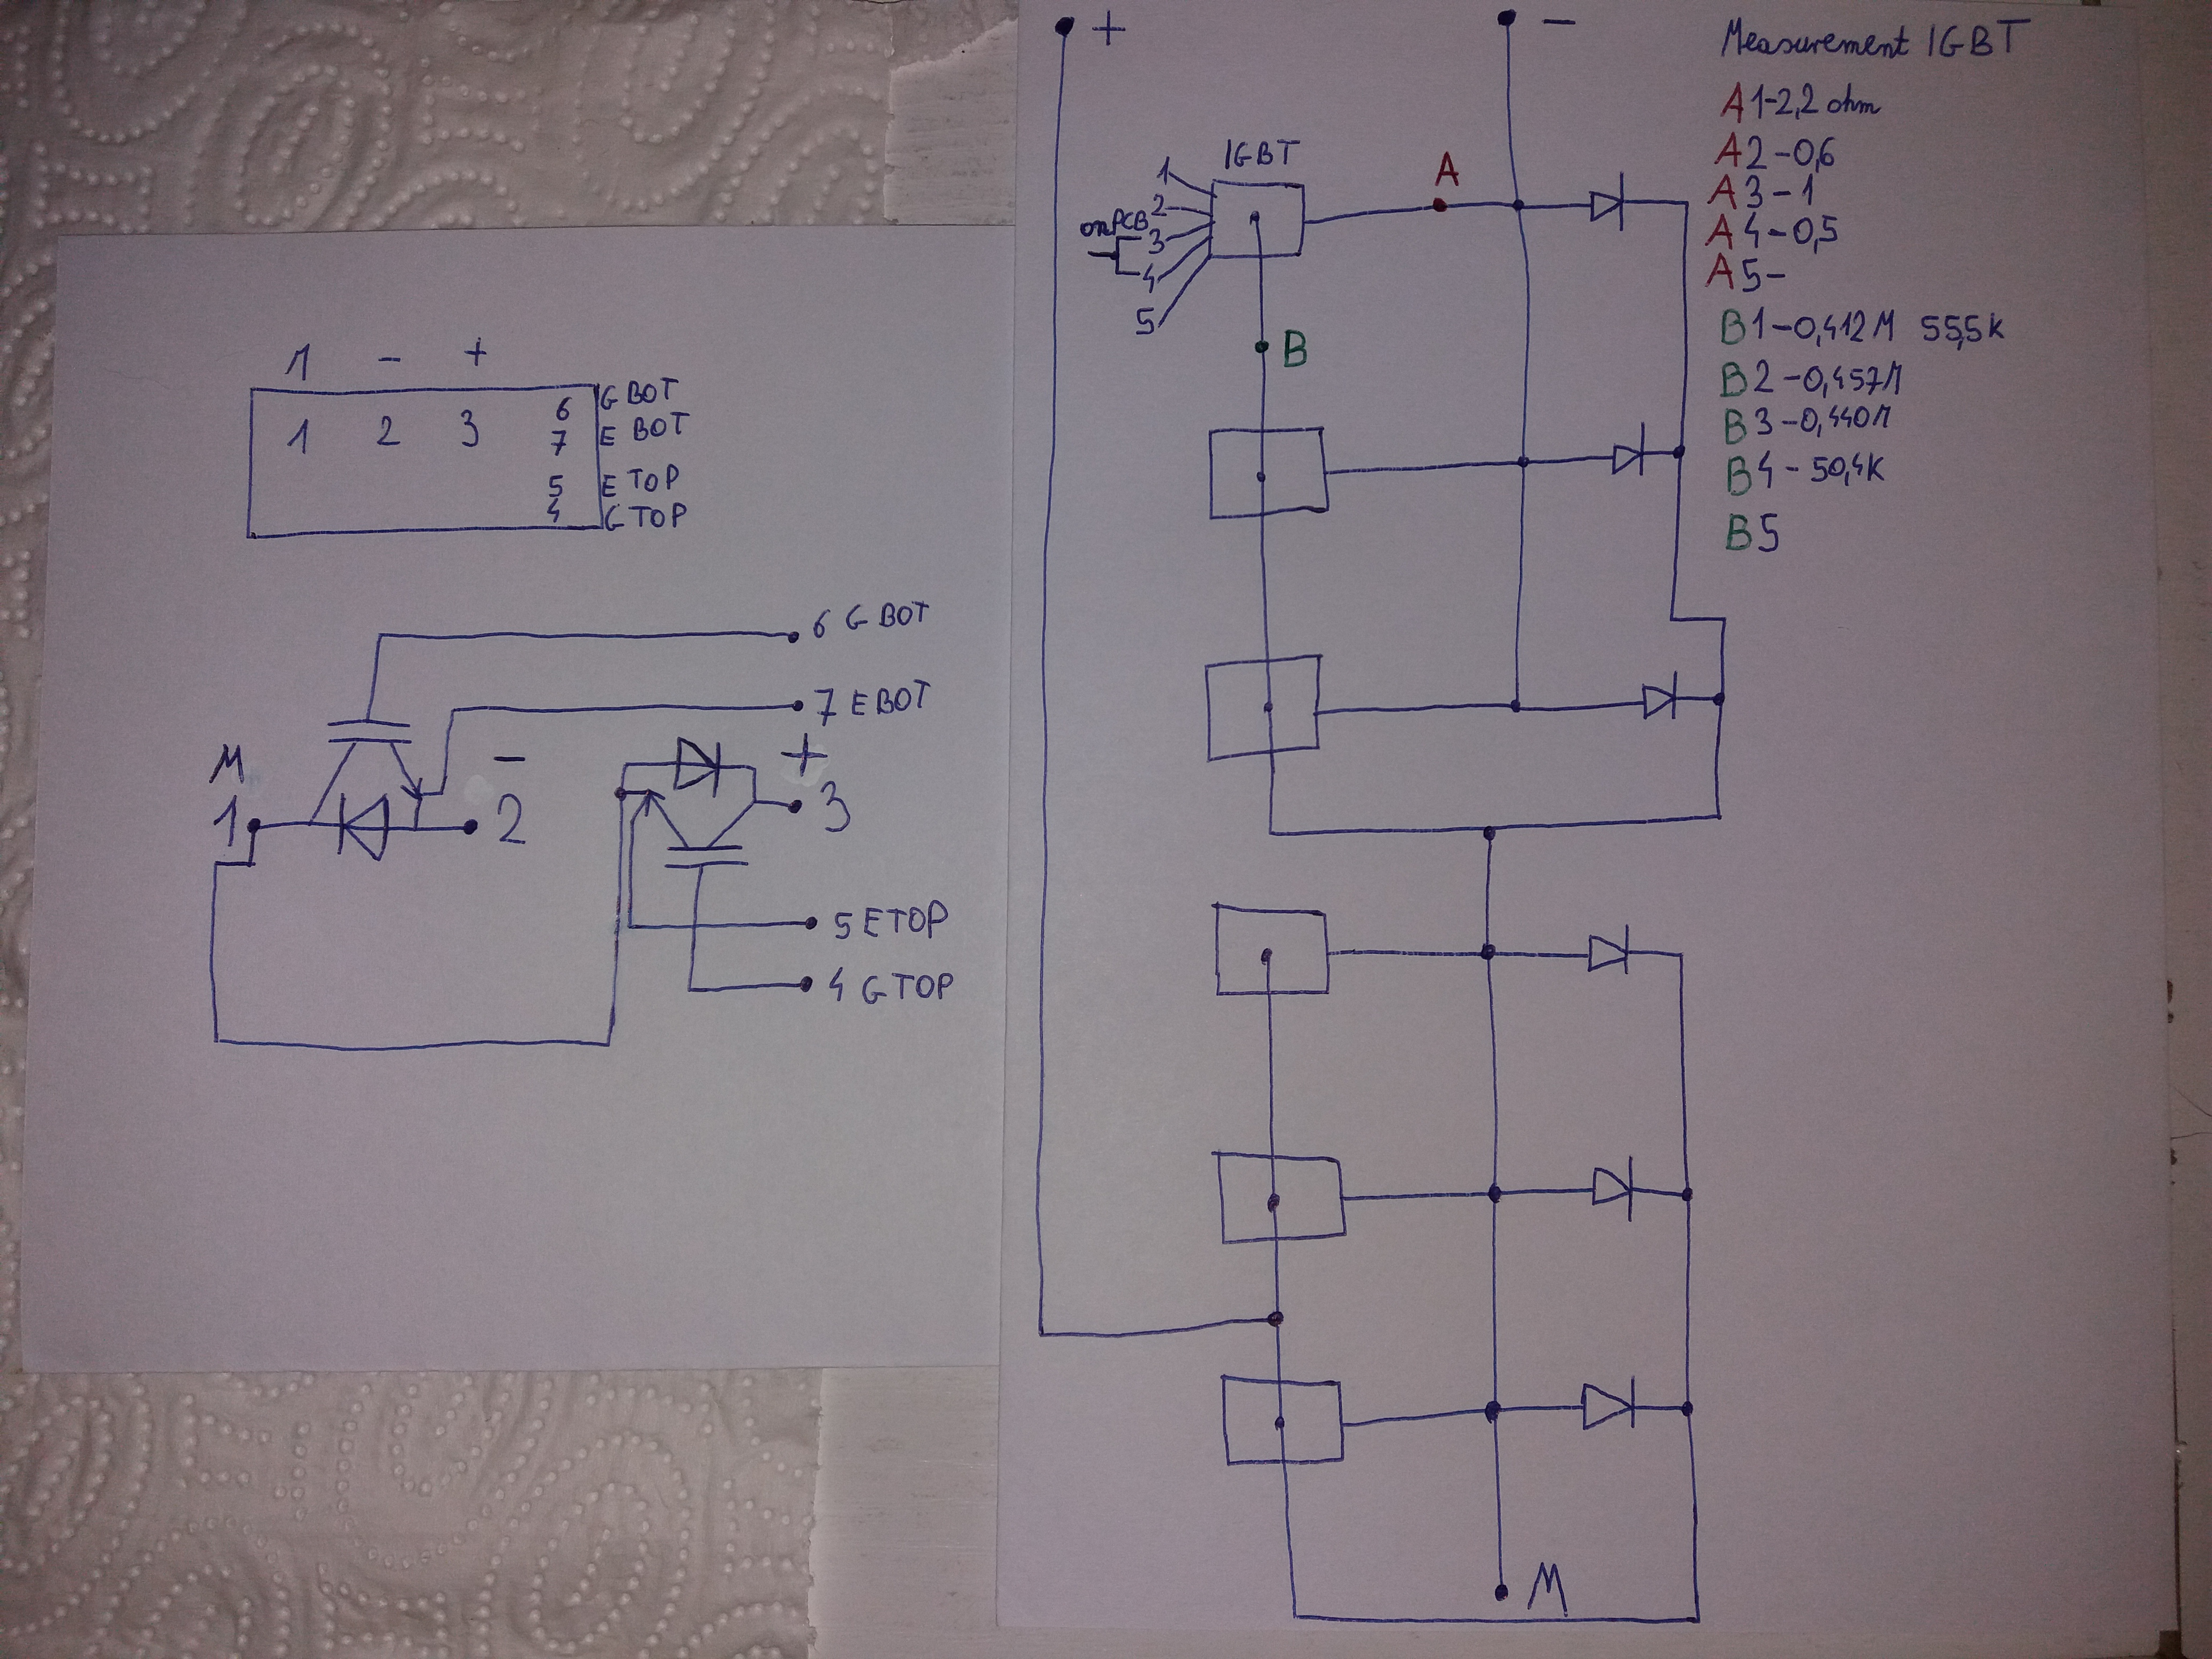 1 - +
1 2 3
6 G BOT
7 E BOT
5 E TOP
4 G TOP
6 G BOT
7 E BOT
M - +
1 2 3
5 E TOP
4 G TOP
+ -
Measurement IGBT
A1-2,2 ohm
A2-0,6
A3-1
A4-0,5
A5-
B1-0,412M 55,5k
B2-0,457M
B3-0,440M
B4-50,4K
B5
IGBT
A
1
2
on PCB
3
4
5
B
M